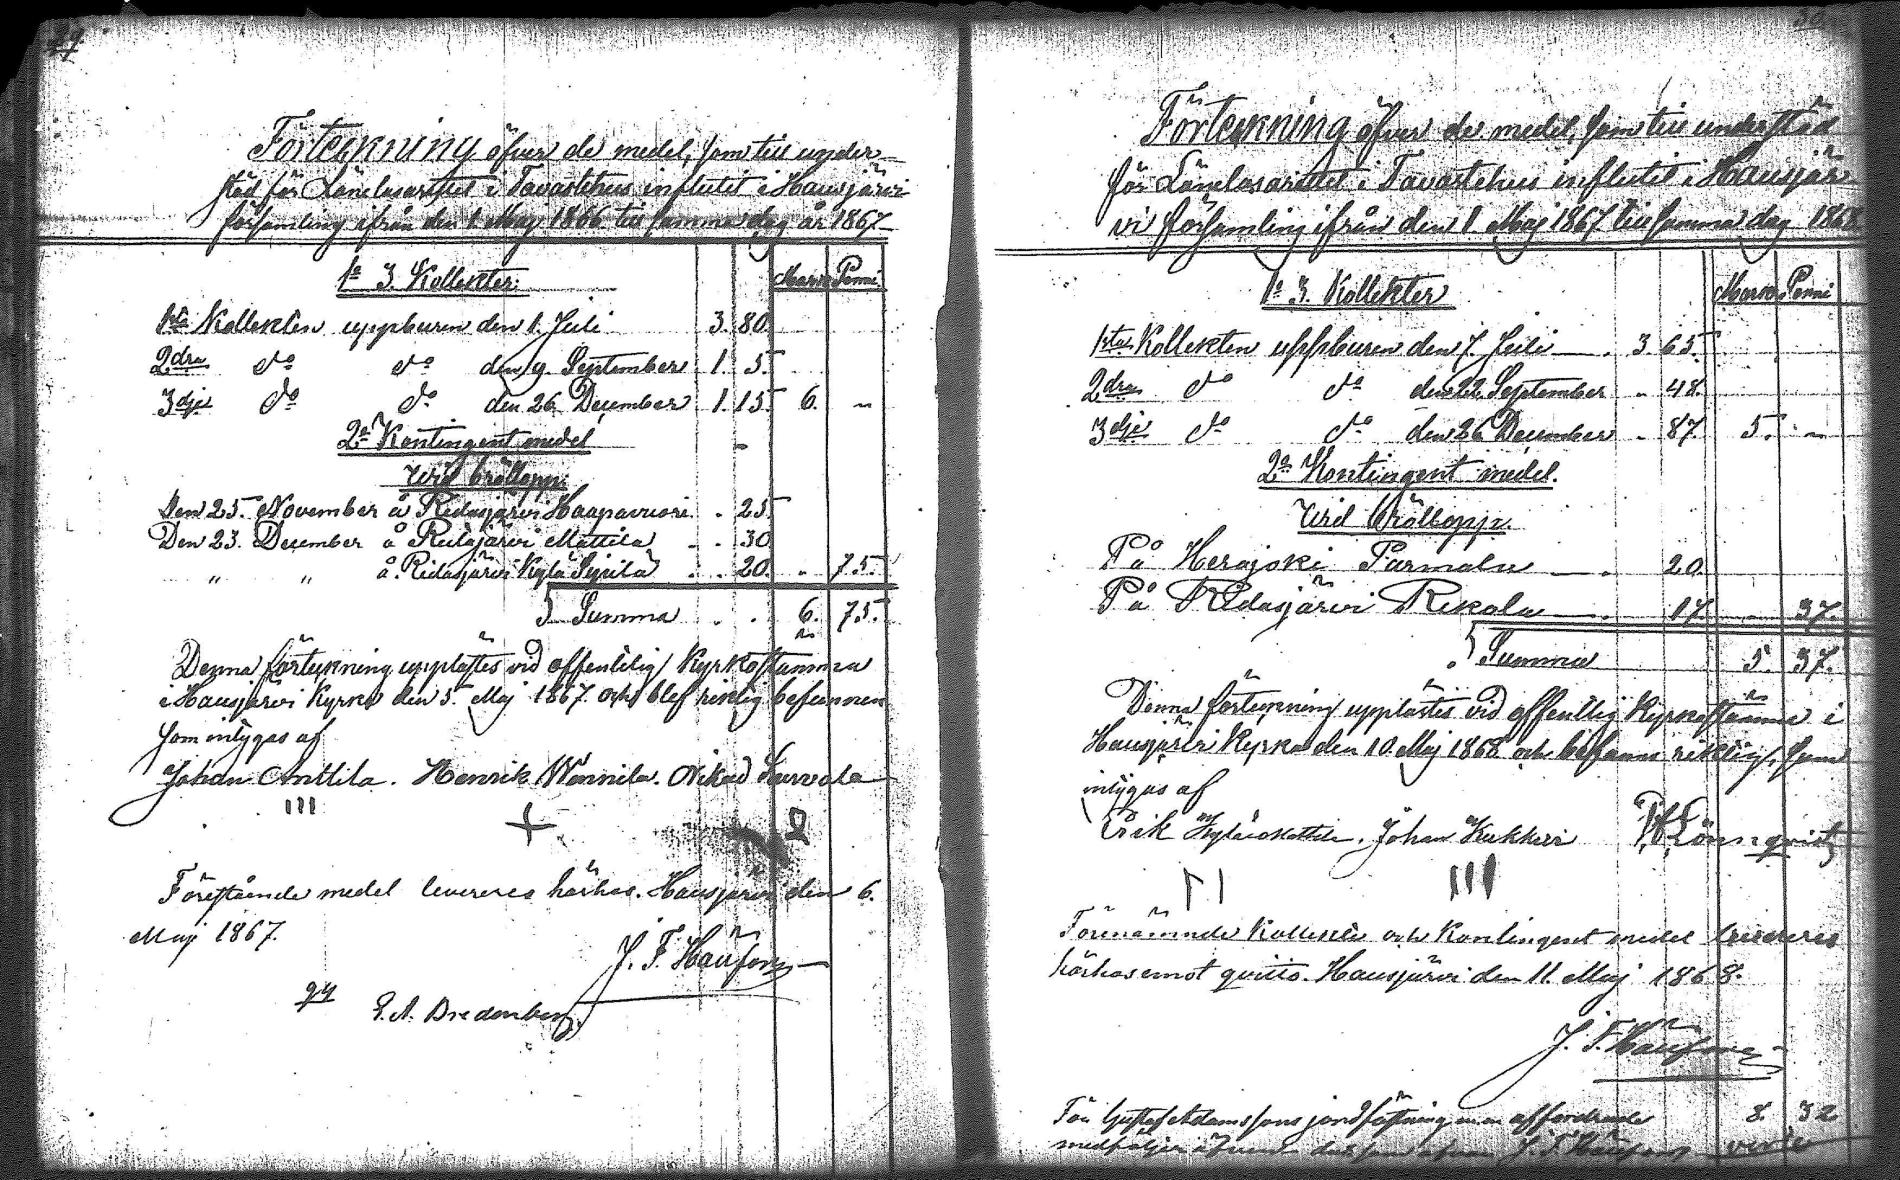 29
Förteckning öfver de medel, som till under-
stöd för Länelasarettet i Tavastehus influtit i Hausjärvi
församling ifrån den 1. Maj 1866 till samma dag år 1867
1o 3. Kollekter:
Mark Penni
1sta Kollekten uppburen den 1. Juli 3. 80.
2dra do do den 9. September 1. 5.
3dje do do den 26. December 1. 15. 6. "
2o Kontingent medel
Vid bröllopp.
Den 25. November å Ridasjärvi Haapavuori . 25.
Den 23. December å Ridasjärvi Mattila . . 30
" " å. Ridasjärvi Kylä Sipilä . . 20. . 75.
Summa . . 6. 75.
Denna förteckning upplästes vid offentlig Kyrkostämma
i Hausjärvi Kyrka den 5. Maj 1867. och blef riktig befunnen
som intygas af
Johan Anttila. Henrik Wännilä.
Föreståënde medel levereres härhos. Hausjärvi den 6.
Maj 1867.
J. F. Häufon
94
E. A. Bredenberg.
30
Förteckning öfver de medel, som till understöd
för Länelasarettet i Tavastehus influtit i Hausjär-
vi församling ifrån den 1 Maj 1867 till samma dag 1868
1o 3. Kollekter
Mark Penni
1sta Kollekten uppburen den 7. Juli . 3. 65.
2dra do do den 22 September " 48.
3dje do do den 26 December " 87. 5. "
2o Kontingent medel.
Vid bröllopp.
På Herajoki Parmala . 20.
På Ridasjärvi Rekola . 17. 37.
Summa 5. 37.
Denna förteckning upplästes vid offentlig Kyrkostämma i
Hausjärvi Kyrka den 10. Maj 1868 och befanns riktig, som
intygas af
Erik Johan Kukkuri Lönnqvist
Förenämnde Kollekte och Kontingent medel levereres
härhos emot qvitto. Hausjärvi den 11. Maj 1868.
J. F. Häufon
För Gustaf Adamssons jordfästning 8. 32
medföljer